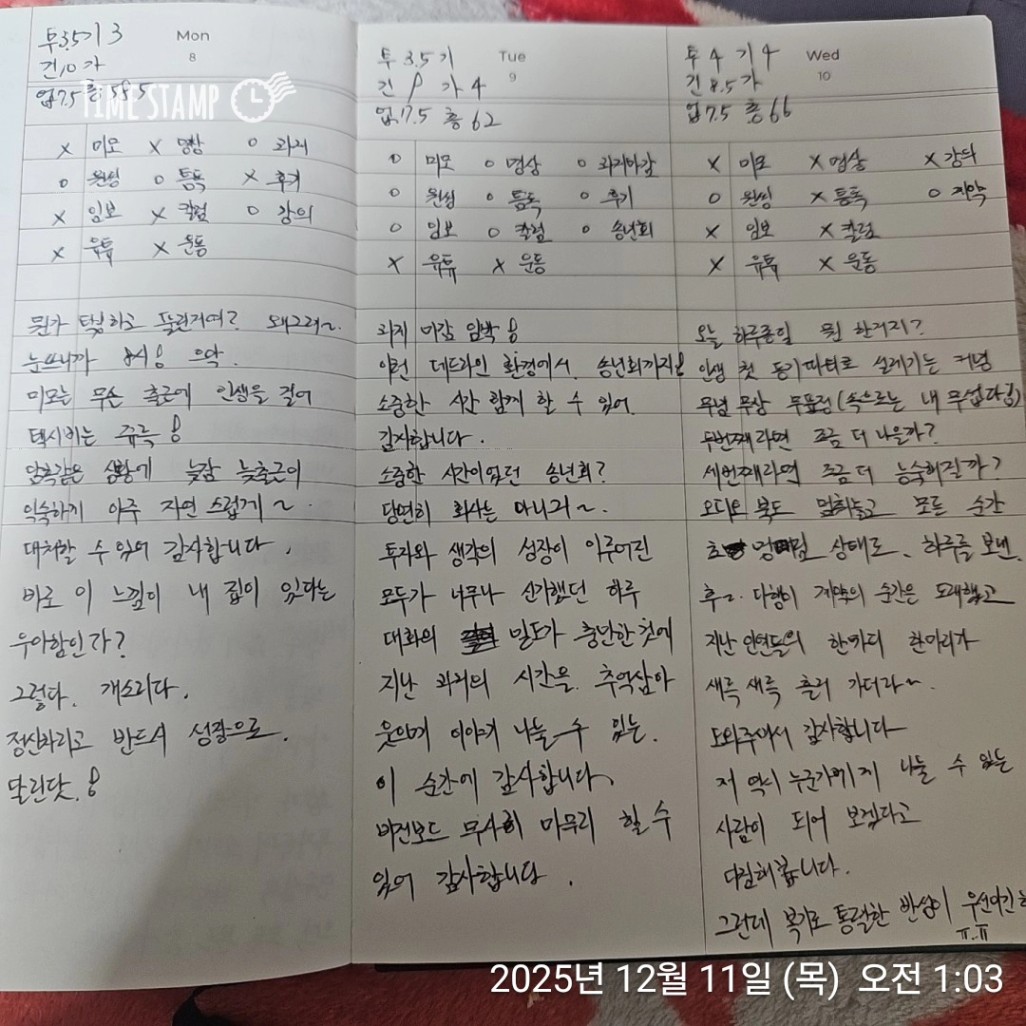 투3.5 기 3
Mon
건10 가
8
업7.5 총 58.5
TIME STAMP
x 미모 x 명상 o 과제
o 원씽 o 틈독 x 후기
x 임보 x 칼럼 o 강의
x 유튜 x 운동
뭔가 당연하고
눈뜨니까 8시! 으악.
미모는 무슨 출근에 인생을 걸어
택시비는 쥬륵 !
암흑같은 상황에 늦잠 늦출근이
익숙하게 아주 자연스럽게~
대처할 수 있어 감사합니다.
바로 이 느낌이 내 집이 있다는
우아함인가?
그렇다. 개소리다.
정신차리고 반드시 성장으로.
달린닷!
투 3.5 기
Tue
9
건 9 가 4
업7.5 총 62
o 미모 o 명상 o 과제마감
o 원씽 o 틈독 o 후기
o 임보 o 칼럼 o 송년회
x 유튜 x 운동
과제 마감 임박!
이런 데드라인 환경에서 송년회까지!
소중한 시간 함께 할 수 있어
감사합니다.
소중한 시간이었던 송년회?
당연히 회사는 아니지~.
투자와 생각의 성장이 이루어진
모두가 너무나 신기했던 하루
대화의 밀도가 충만한 것에
지난 과거의 시간을 추억삼아
웃으며 이야기 나눌 수 있는
이 순간에 감사합니다.
비전보드 무사히 마무리 할 수
있어 감사합니다.
투 4 기 4
Wed
10
건 8.5 가
업 7.5 총 66
x 미모 x 명상 x 강의
o 원씽 x 틈독 o 계약
x 임보 x 칼럼
x 유튜 x 운동
오늘 하루종일 뭔 한거지?
인생 첫 동기파티로 설레기는 커녕
무념 무상 무표정(속으로는 내 무섭다잉)
두번째라면 조금 더 나을까?
세번째라면 조금 더 능숙해질까?
오디오 북도 멈춰놓고 모든 순간
상태로. 하루를 보낸
후~. 다행히 계약의 순간은 도래했고
지난 인연들의 한마디 한마디가
새록 새록 흘러 가더라~.
도와주셔서 감사합니다
저 역시 누군가에게 나눌 수 있는
사람이 되어 보겠다고
다짐해봅니다.
그런데 복기로 통렬한 반성이 우선이긴
ㅠ.ㅠ
2025년 12월 11일 (목) 오전 1:03